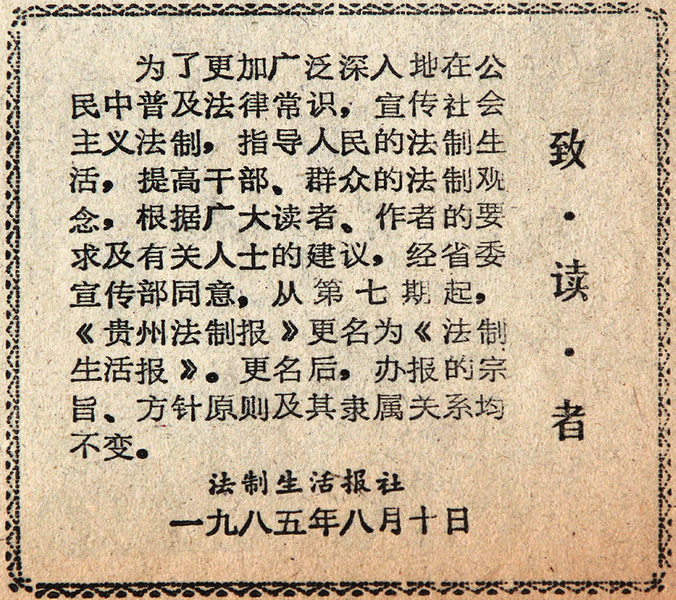 致·读·者
为了更加广泛深入地在公
民中普及法律常识，宣传社会
主义法制，指导人民的法制生
活，提高干部、群众的法制观
念，根据广大读者、作者的要
求及有关人士的建议，经省委
宣传部同意，从第七期起，
《贵州法制报》更名为《法制
生活报》。更名后，办报的宗
旨、方针原则及其隶属关系均
不变。
法制生活报社
一九八五年八月十日